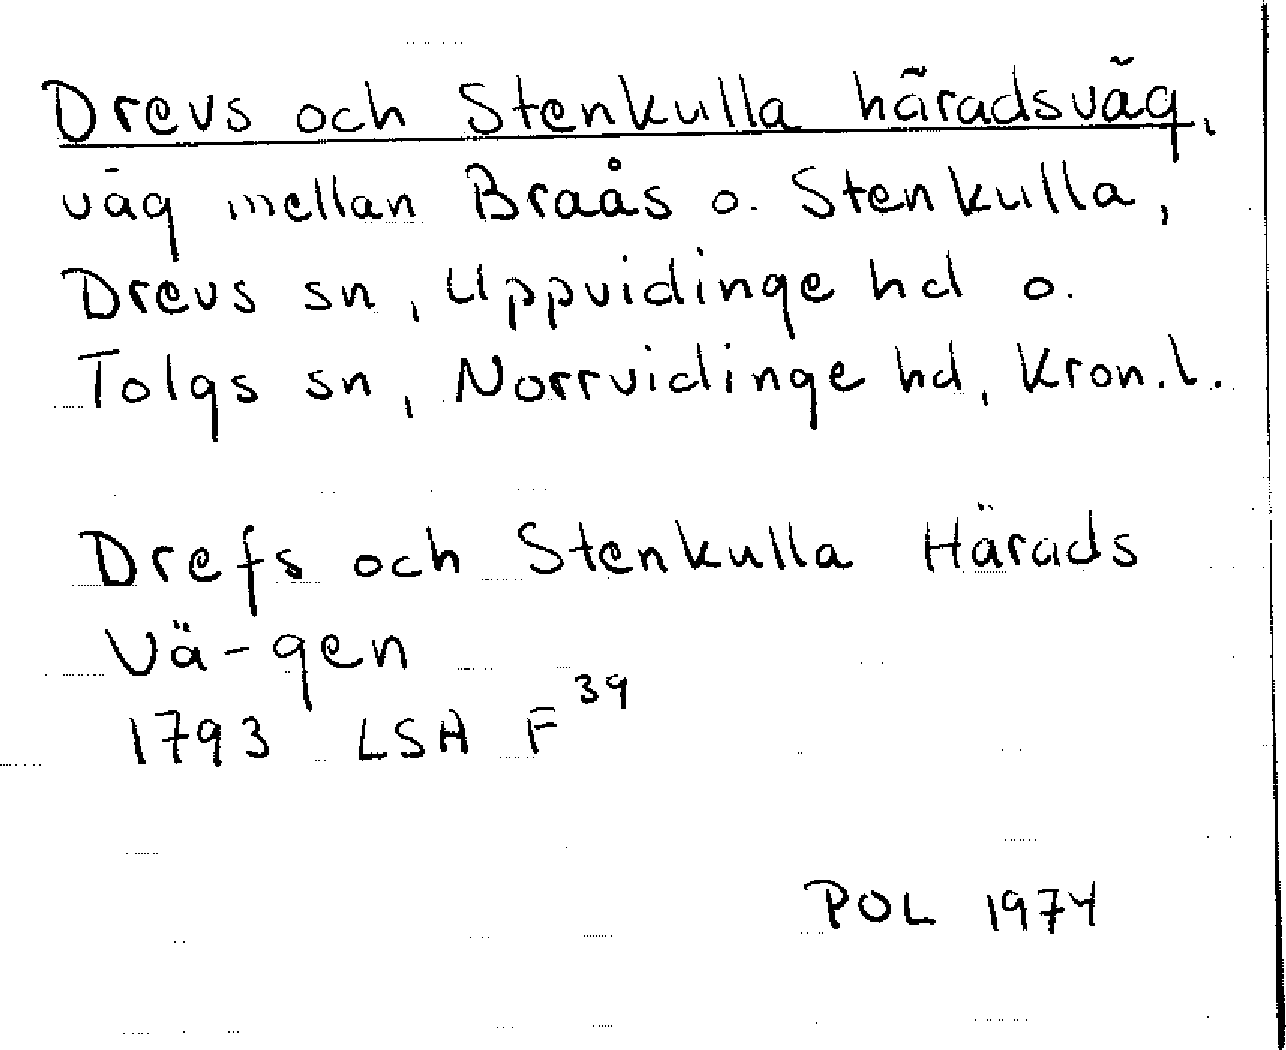 Drevs och Stenkulla häradsväg,
väg mellan Braås o. Stenkulla,
Drevs sn, Uppvidinge hd o.
Tolgs sn, Norrvidinge hd, Kron.l.
Drefs och Stenkulla Härads
Vä-gen
1793 LSA F 39
POL 1974